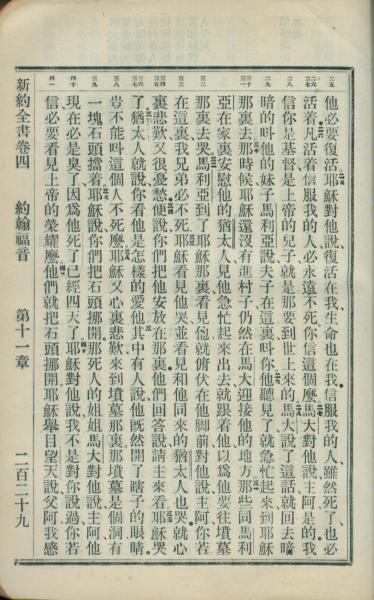 他必要復活耶穌對他說復活在我生命也在我信服我的人雖然死了也必
活着凡活着信服我的人必永遠不死你信這個麼馬大對他說主阿是的我
信你是基督是上帝的兒子就是那要到世上來的馬大說了這話就回去暗
暗的呌他的妹子馬利亞說夫子在這裏呌你他聽見了就急忙起來到耶穌
那裏去那時候耶穌還沒有進村子仍然在馬大迎接他的地方那些同馬利
亞在家裏安慰他的猶太人見他急忙起來出去就跟着他以爲他要往墳墓
那裏去哭馬利亞到了耶穌那裏看見他就俯伏在他脚前對他說主阿你若
在這裏我兄弟必不死耶穌看見他哭並看見和他同來的猶太人也哭就心
裏悲歎又很憂愁便說你們把他安放在那裏他們回答說請主來看耶穌哭
了猶太人就說你看他是怎樣的愛他其中有人說他旣然開了瞎子的眼睛
豈不能呌這個人不死麼耶穌又心裏悲歎來到墳墓那裏那墳墓是個洞有
一塊石頭擋着耶穌說你們把石頭挪開那死人的姐姐馬大對他說主阿他
現在必是臭了因爲他死了已經四天了耶穌對他說我不是對你說過你若
信必要看見上帝的榮耀麼他們就把石頭挪開耶穌舉目望天說父阿我感
新約全書卷四 約翰福音 第十一章 二百二十九